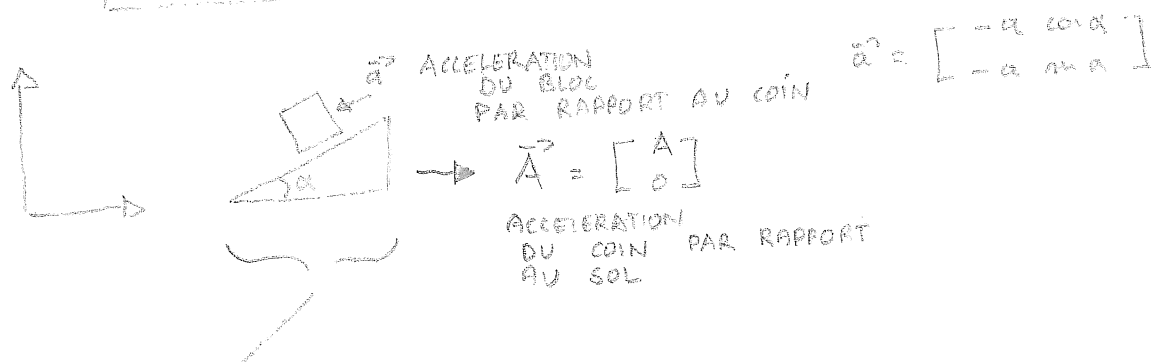 a⃗ ACCELERATION
DU BLOC
PAR RAPPORT AU COIN
a⃗ = [ -a cos α
-a sin α ]
α
A⃗ = [ A
0 ]
ACCELERATION
DU COIN PAR RAPPORT
AU SOL